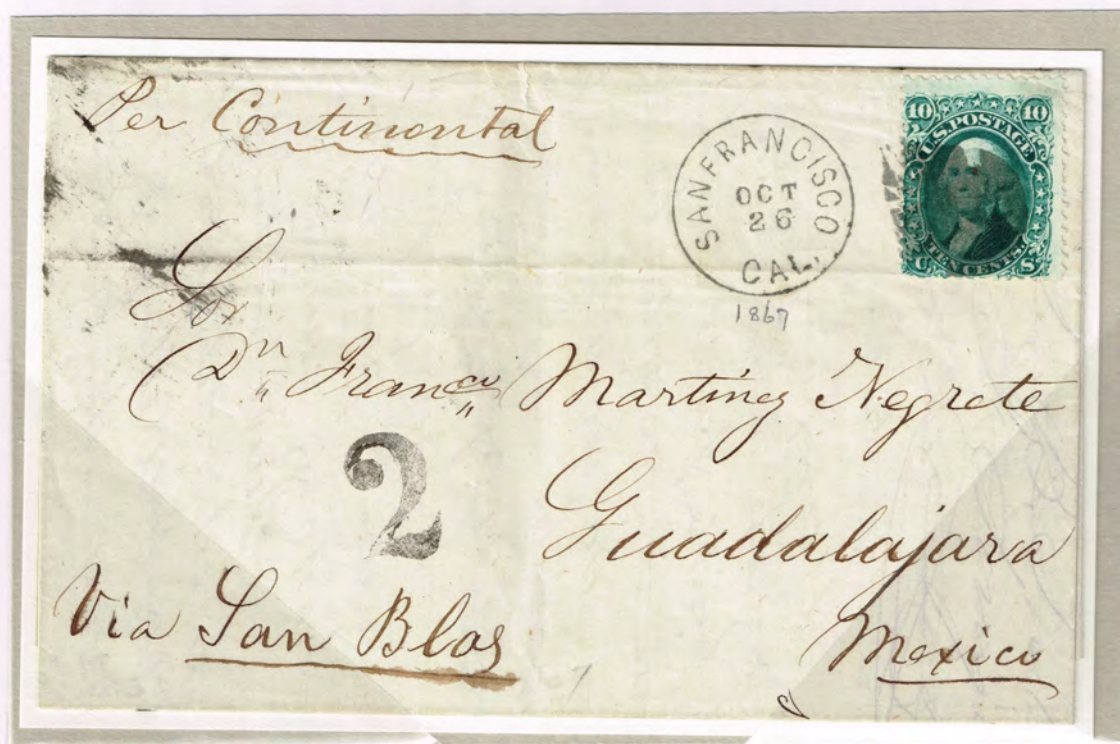 Per Continental
SAN FRANCISCO
OCT
26
CAL.
1867
10 10
U.S. POSTAGE
TEN CENTS.
U S
Sor
Dn Franco Martinez Negrete
2
Guadalajara
Via San Blas
Mexico